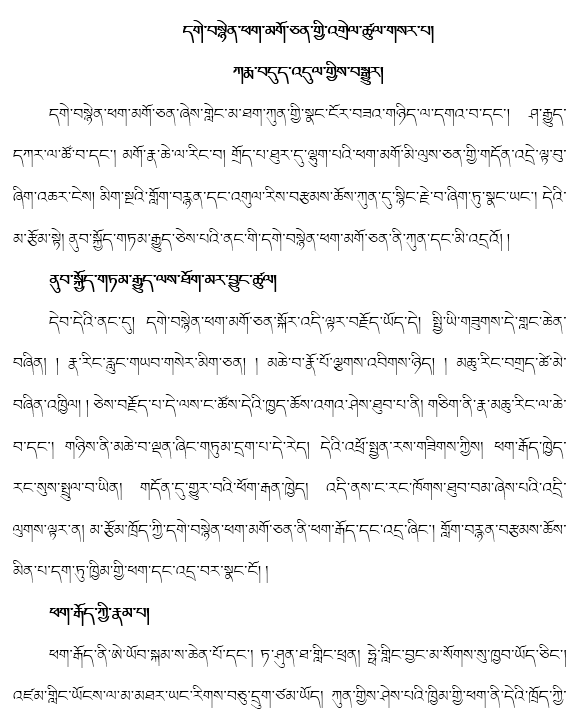 དགེ་བསྙེན་ཕག་མགོ་ཅན་གྱི་འགྲེལ་ཚུལ་གསར་པ།
ཀརྨ་བདུད་འདུལ་གྱིས་བསྒྱུར།
དགེ་བསྙེན་ཕག་མགོ་ཅན་ཞེས་གླེང་མ་ཐག་ཀུན་གྱི་སྣང་ངོར་བཟའ་གཉིད་ལ་དགའ་བ་དང་། ཤ་རྒྱུད་
དཀར་ལ་ཚོ་བ་དང་། མགོ་རྣ་ཆེ་ལ་རིང་བ། གྲོད་པ་ཐུར་དུ་ལྷུག་པའི་ཕག་མགོ་མི་ལུས་ཅན་གྱི་གདོན་འདྲེ་ལྟ་བུ་
ཞིག་འཆར་ངེས། མིག་སྔའི་གློག་བརྙན་དང་འགུལ་རིས་བརྩམས་ཆོས་ཀུན་དུ་སྙིང་རྗེ་བ་ཞིག་ཏུ་སྣང་ཡང་། དེའི་
མ་རྩོམ་སྟེ། ནུབ་སྐྱོད་གཏམ་རྒྱུད་ཅེས་པའི་ནང་གི་དགེ་བསྙེན་ཕག་མགོ་ཅན་ནི་ཀུན་དང་མི་འདྲའོ། །
ནུབ་སྐྱོད་གཏམ་རྒྱུད་ལས་ཐོག་མར་བྱུང་ཚུལ།
དེབ་དེའི་ནང་དུ། དགེ་བསྙེན་ཕག་མགོ་ཅན་སྐོར་འདི་ལྟར་བརྗོད་ཡོད་དེ། སྤྱི་ཡི་གཟུགས་དེ་གླང་ཆེན་
བཞིན། ། རྣ་རིང་རླུང་གཡབ་གསེར་མིག་ཅན། ། མཆེ་བ་རྣོ་པོ་ལྕགས་འབིགས་ཉིད། ། མཆུ་རིང་བགྲད་ཚེ་མེ་
བཞིན་འཁྱིལ། ། ཅེས་བརྗོད་པ་དེ་ལས་ང་ཚོས་དེའི་ཁྱད་ཆོས་འགའ་ཤེས་ཐུབ་པ་ནི། གཅིག་ནི་རྣ་མཆུ་རིང་ལ་ཆེ་
བ་དང་། གཉིས་ནི་མཆེ་བ་ལྡན་ཞིང་གཏུམ་དྲག་པ་དེ་རེད། དེའི་འཕྲོ་སྤྱན་རས་གཟིགས་ཀྱིས། ཕག་རྒོད་ཁྱེད་
རང་སུས་སྤྲུལ་བ་ཡིན། གདོན་དུ་གྱུར་བའི་ཕོག་རྒན་ཁྱེད། འདི་ནས་ང་རང་ཁོགས་ཐུབ་བམ་ཞེས་པའི་འདྲི་
ལུགས་ལྟར་ན། མ་རྩོམ་ཁྲོད་ཀྱི་དགེ་བསྙེན་ཕག་མགོ་ཅན་ནི་ཕག་རྒོད་དང་འདྲ་ཞིང་། གློག་བརྙན་བརྩམས་ཆོས་
མིན་པ་དག་ཏུ་ཁྱིམ་གྱི་ཕག་དང་འདྲ་བར་སྣང་ངོ། །
ཕག་རྒོད་ཀྱི་རྣམ་པ།
ཕག་རྒོད་ནི་ཨེ་ཡོབ་སྐམ་ས་ཆེན་པོ་དང་། ཏ་ཤུན་ཐ་གླིང་ཕྲན། ཧྥེ་གླིང་བྱང་མ་སོགས་སུ་ཁྱབ་ཡོད་ཅིང་།
འཛམ་གླིང་ཡོངས་ལ་མ་མཐར་ཡང་རིགས་བཅུ་དྲུག་ཙམ་ཡོད། ཀུན་གྱིས་ཤེས་པའི་ཁྱིམ་གྱི་ཕག་ནི་དེའི་ཁྲོད་ཀྱི་